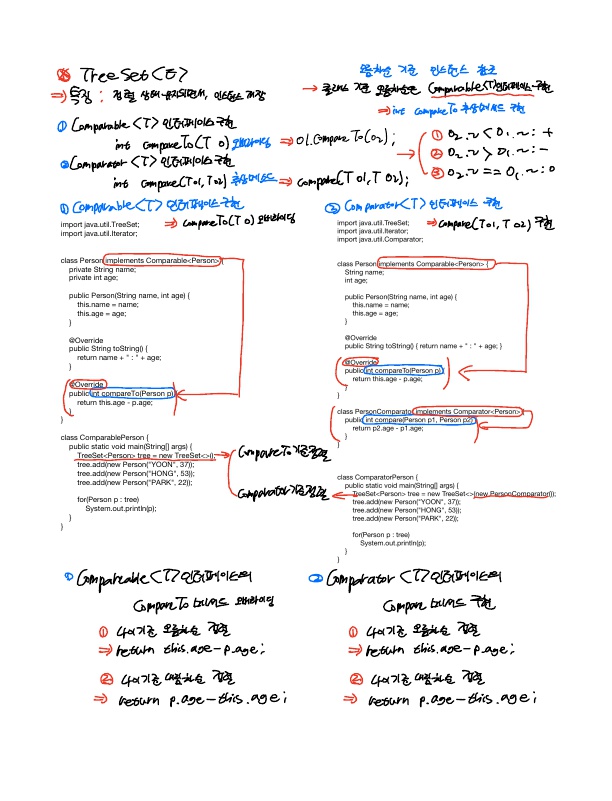 ※ TreeSet<E>
⇒ 특징 : 정렬 상태 유지되면서, 인스턴스 저장
오름차순 기준 인스턴스 참조
→ 클래스 기준 오름차순은 Comparable<T>인터페이스 구현
⇒ int compareTo 추상메소드 구현
① Comparable<T> 인터페이스 구현
int compareTo(T o) 오버라이딩 ⇒ o1.compareTo(o2);
② Comparator<T> 인터페이스 구현
int compare(T o1, T o2) 추상메소드 ⇒ compare(T o1, T o2);
→ ① o2.~ < o1.~ : +
② o2.~ > o1.~ : -
③ o2.~ == o1.~ : 0
① Comparable<T> 인터페이스 구현
⇒ compareTo(T o) 오버라이딩
import java.util.TreeSet;
import java.util.Iterator;
class Person implements Comparable<Person> {
private String name;
private int age;
public Person(String name, int age) {
this.name = name;
this.age = age;
}
@Override
public String toString() {
return name + " : " + age;
}
@Override
public int compareTo(Person p) {
return this.age - p.age;
}
}
class ComparablePerson {
public static void main(String[] args) {
TreeSet<Person> tree = new TreeSet<>();
tree.add(new Person("YOON", 37));
tree.add(new Person("HONG", 53));
tree.add(new Person("PARK", 22));
for(Person p : tree)
System.out.println(p);
}
}
CompareTo 기준 정렬
Comparator 기준 정렬
② Comparator<T> 인터페이스 구현
⇒ compare(T o1, T o2) 구현
import java.util.TreeSet;
import java.util.Iterator;
import java.util.Comparator;
class Person implements Comparable<Person> {
String name;
int age;
public Person(String name, int age) {
this.name = name;
this.age = age;
}
@Override
public String toString() { return name + " : " + age; }
@Override
public int compareTo(Person p) {
return this.age - p.age;
}
}
class PersonComparator implements Comparator<Person> {
public int compare(Person p1, Person p2) {
return p2.age - p1.age;
}
}
class ComparatorPerson {
public static void main(String[] args) {
TreeSet<Person> tree = new TreeSet<>(new PersonComparator());
tree.add(new Person("YOON", 37));
tree.add(new Person("HONG", 53));
tree.add(new Person("PARK", 22));
for(Person p : tree)
System.out.println(p);
}
}
① Compareable<T>인터페이스의
CompareTo 메서드 오버라이딩
① 나이기준 오름차순 정렬
⇒ return this.age-p.age;
② 나이기준 내림차순 정렬
⇒ return p.age-this.age;
② Comparator<T>인터페이스의
Compare 메서드 구현
① 나이기준 오름차순 정렬
⇒ return this.age-p.age;
② 나이기준 내림차순 정렬
⇒ return p.age-this.age;